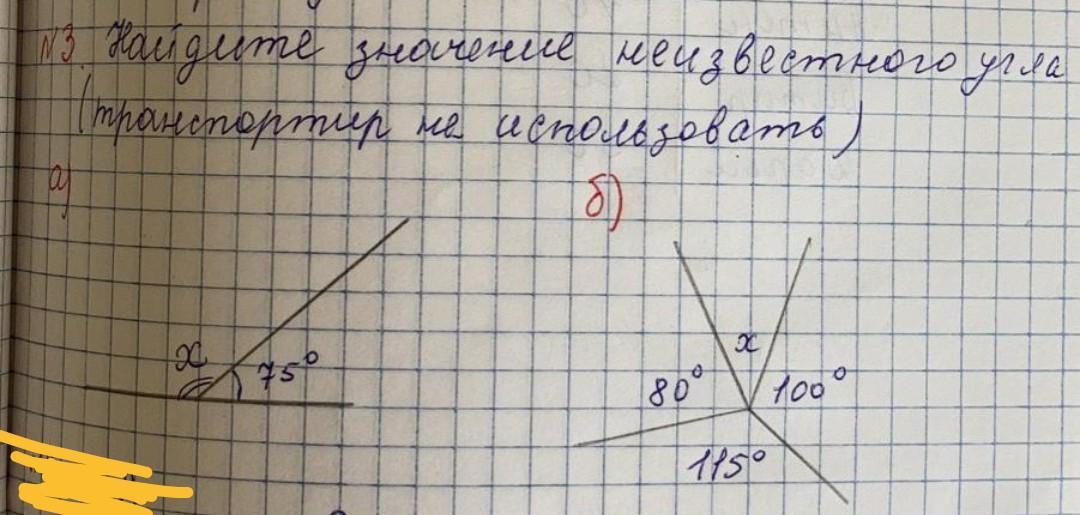 №3. Найдите значение неизвестного угла
(транспортир не использовать)
а)
б)
x
75°
x
80°
100°
115°